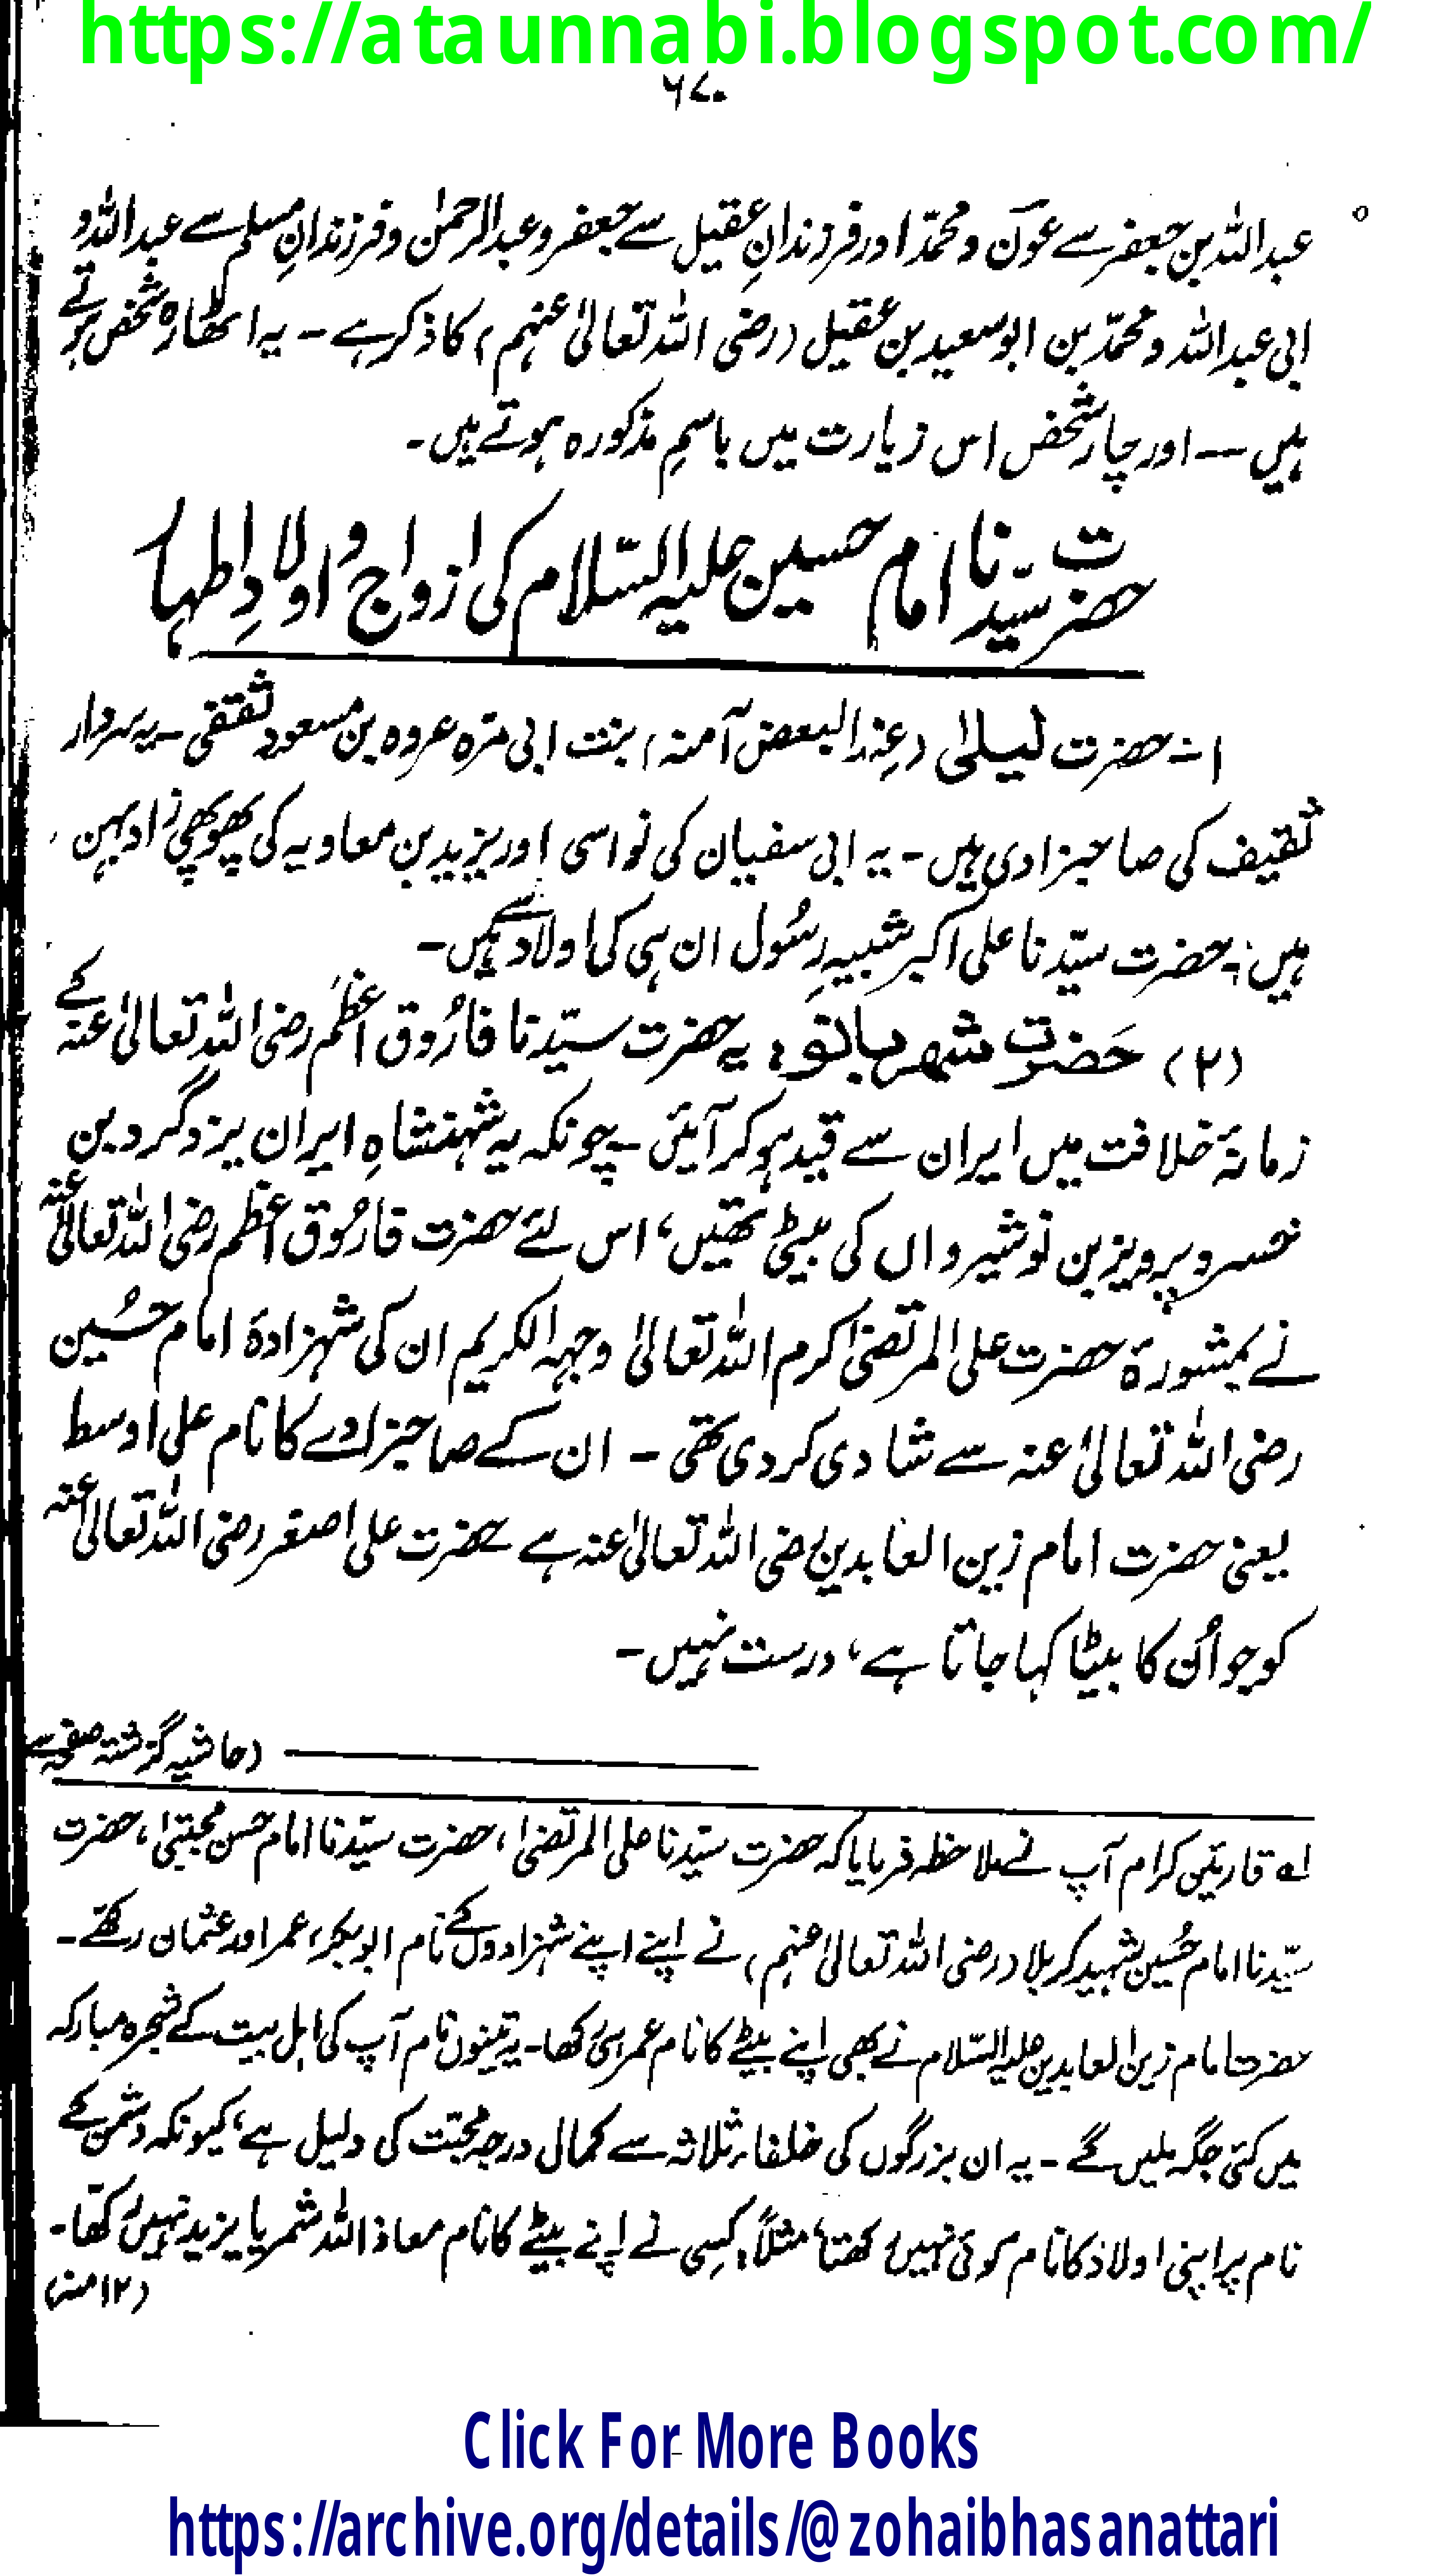 https://ataunnabi.blogspot.com/
۶۷۰
عبداللہ بن جعفر سے عون و محمّد اور فرزندانِ عقیل سے جعفر و عبدالرحمٰن و فرزندانِ مسلم سے عبداللہ و
ابی عبداللہ و محمّد بن ابو سعید بن عقیل (رضی اللہ تعالیٰ عنہم) کا ذکر ہے ۔ یہ اٹھارہ شخص ہوتے
ہیں ــ اور چار شخص اس زیارت میں باسمِ مذکورہ ہوتے ہیں۔
حضرت سیّدنا امام حسین علیہ السّلام کی ازواج و اولادِ اطہار
۱ـ حضرت لیلیٰ (عِندالبعض آمنہ) بنت ابی مرّہ عروہ بن مسعود ثقفی ۔ یہ سردار
ثقیف کی صاحبزادی ہیں ۔ یہ ابی سفیان کی نواسی اور یزید بن معاویہ کی پھوپھی زاد بہن
ہیں : حضرت سیّدنا علی اکبر شبیہِ رسُول ان ہی کی اولاد سے ہیں ۔
(۲) حَضرت شہر بانو : یہ حضرت سیّدنا فارُوق اعظم رضی اللہ تعالیٰ عنہ کے
زمانۂ خلافت میں ایران سے قید ہو کر آئیں ۔ چونکہ یہ شہنشاہِ ایران یزدگرد بن
خسرو پرویز بن نوشیرواں کی بیٹی تھیں، اس لئے حضرت فارُوق اعظم رضی اللہ تعالیٰ عنہ
نے بمشورۃ حضرت علی المرتضیٰ کرم اللہ تعالیٰ وجہہ الکریم ان کی شہزادہ امام حسُین
رضی اللہ تعالیٰ عنہ سے شادی کر دی تھی ۔ ان کے صاحبزادے کا نام علی اوسط
یعنی حضرت امام زین العابدین رضی اللہ تعالیٰ عنہ ہے حضرت علی اصغر رضی اللہ تعالیٰ عنہ
کو جو اُن کا بیٹا کہا جاتا ہے، درست نہیں ۔
(حاشیہ گزشتہ صفحہ سے
لہ قارئین کرام آپ نے ملاحظہ فرمایا کہ حضرت سیّدنا علی المرتضیٰ، حضرت سیّدنا امام حسن مجتبیٰ، حضرت
سیّدنا امام حسُین شہید کربلا (رضی اللہ تعالیٰ عنہم) نے اپنے اپنے شہزادوں کے نام ابوبکر، عمر اور عثمان رکھے ۔
حضرت امام زین العابدین علیہ السّلام نے بھی اپنے بیٹے کا نام عمر ہی رکھا ۔ یہ تینوں نام آپ کی اہل بیت کے شجرہ مبارکہ
میں کئی جگہ ملیں گے ۔ یہ ان بزرگوں کی خلفاء ثلاثہ سے کمال درجہ محبّت کی دلیل ہے، کیونکہ دشمن کے
نام پر اپنی اولاد کا نام کوئی نہیں رکھتا، مثلاً: کسِی نے اپنے بیٹے کا نام معاذ اللہ شمر یا یزید نہیں رکھا ۔
(۱۲ منہ)
Click For More Books
https://archive.org/details/@zohaibhasanattari